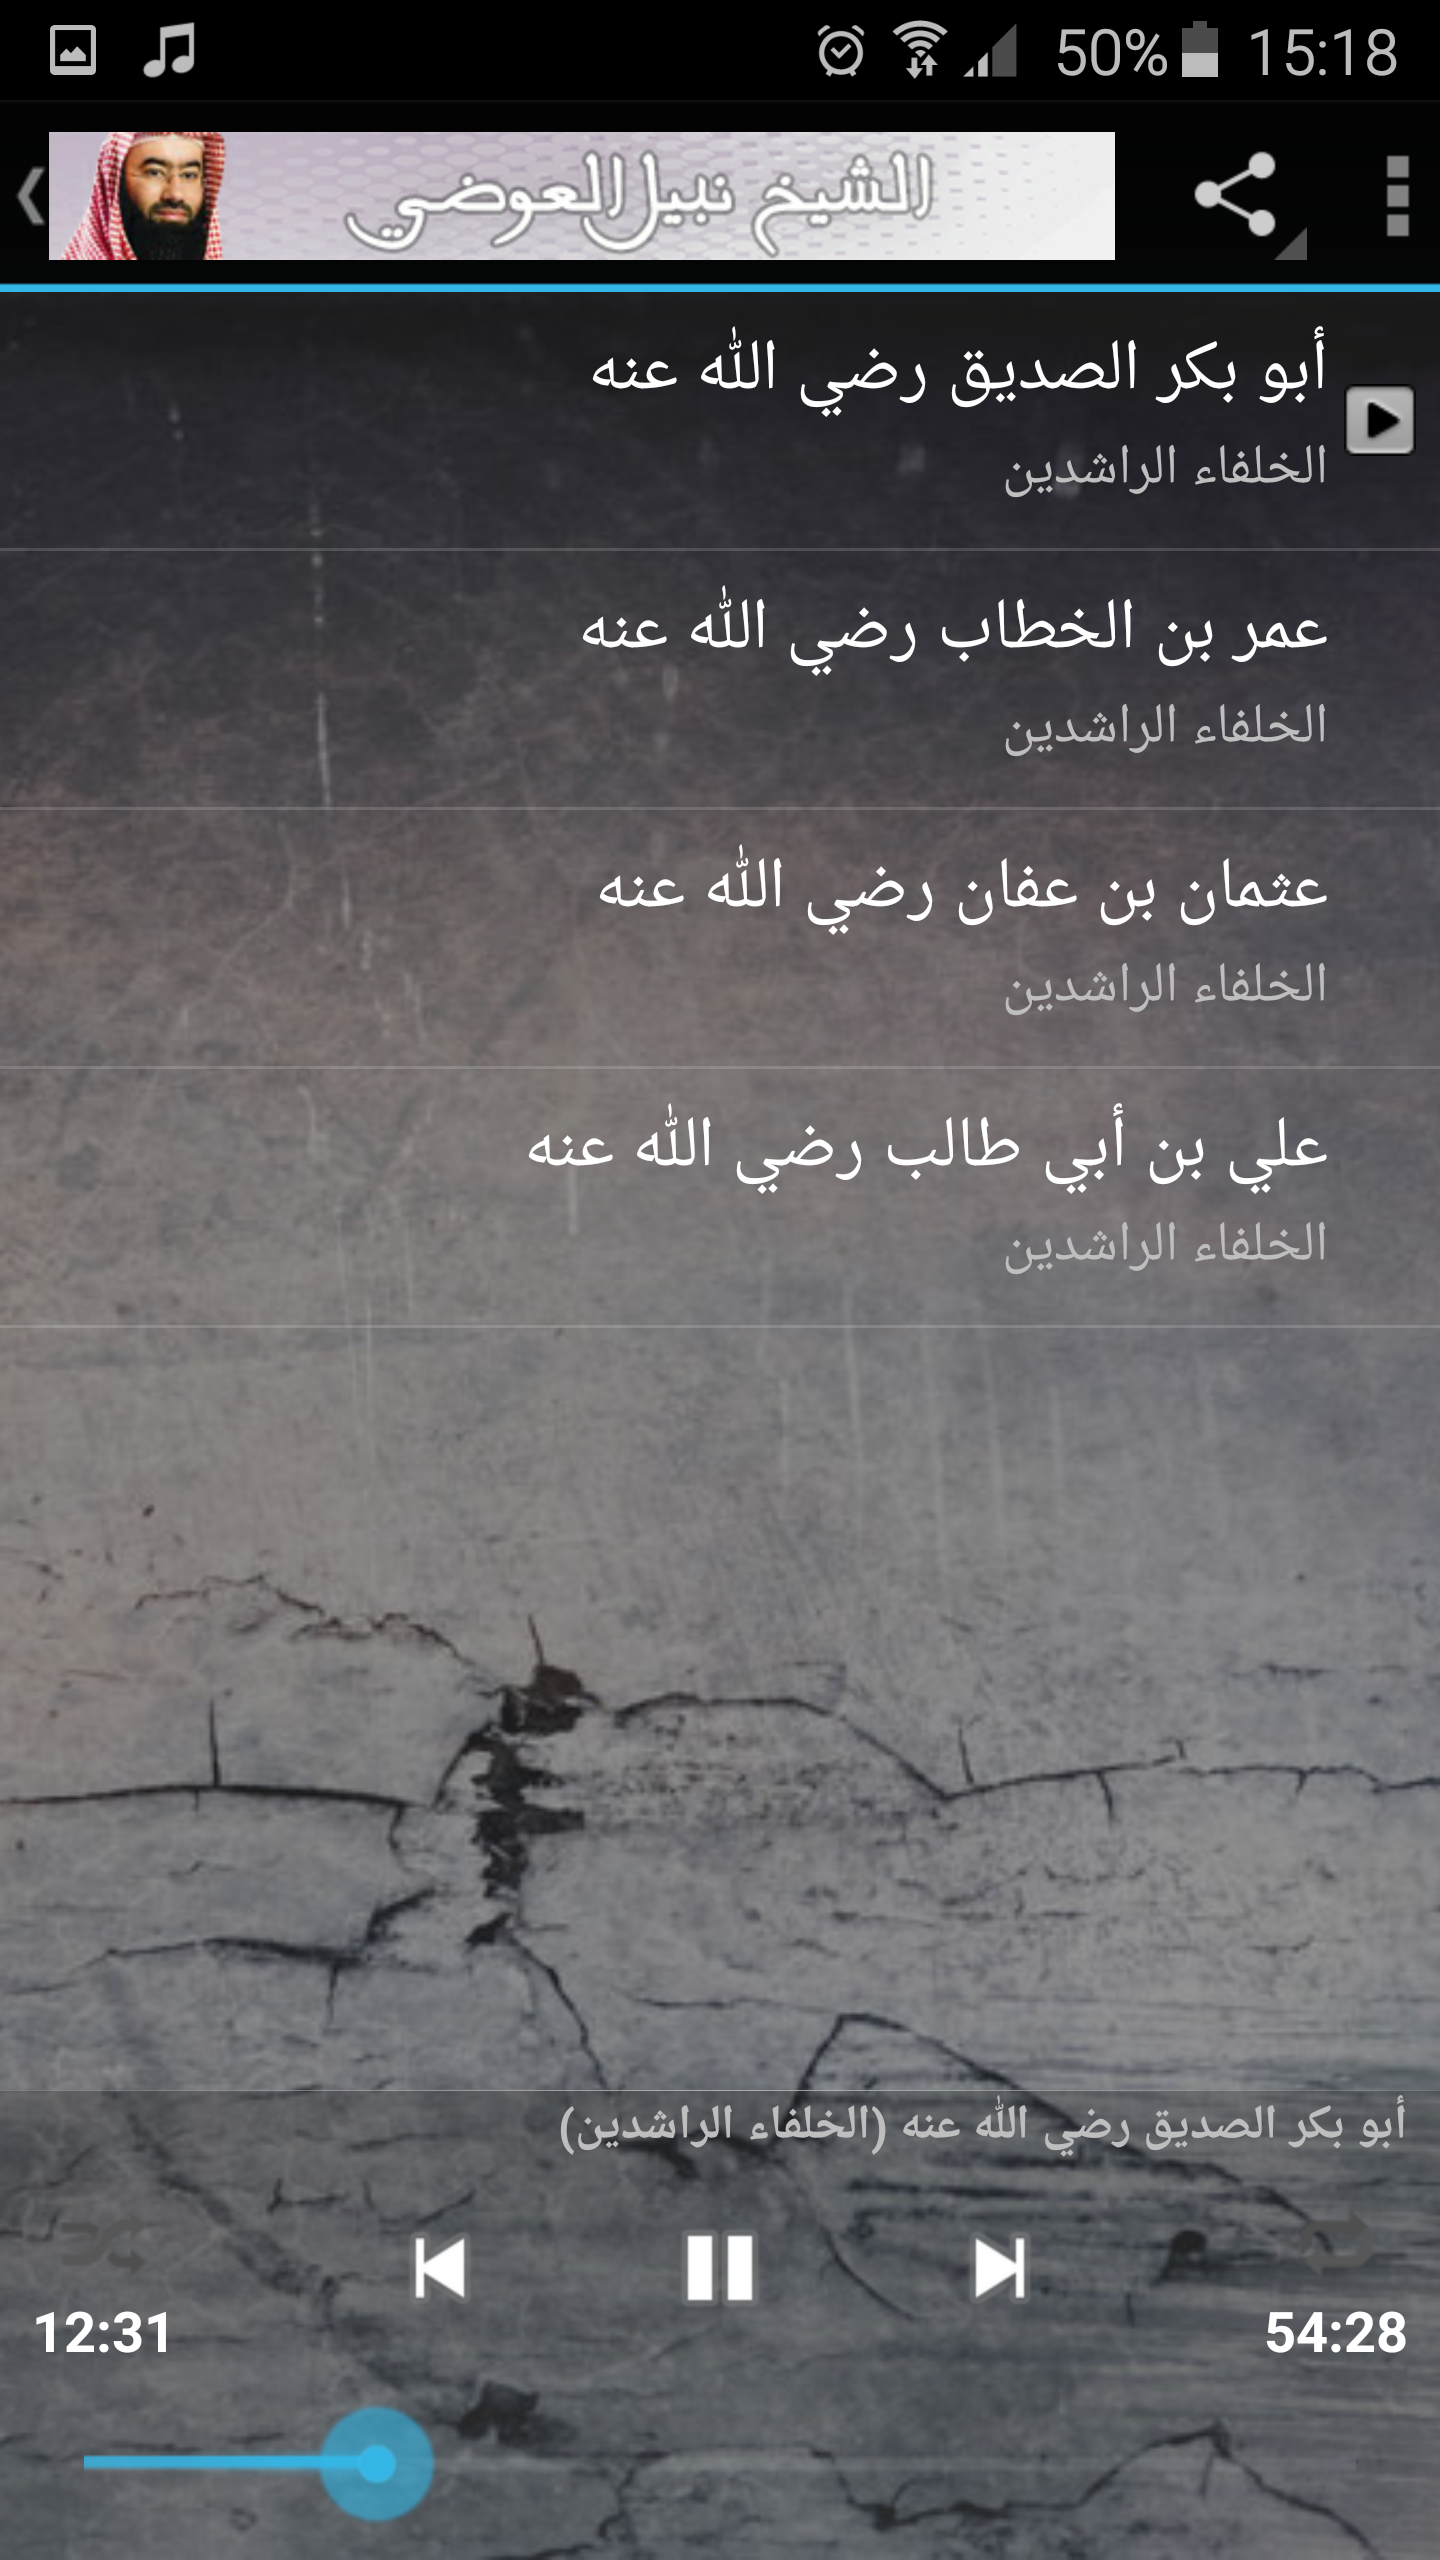 50% 15:18
الشيخ نبيل العوضي
أبو بكر الصديق رضي الله عنه
الخلفاء الراشدين
عمر بن الخطاب رضي الله عنه
الخلفاء الراشدين
عثمان بن عفان رضي الله عنه
الخلفاء الراشدين
علي بن أبي طالب رضي الله عنه
الخلفاء الراشدين
أبو بكر الصديق رضي الله عنه (الخلفاء الراشدين)
12:31 54:28